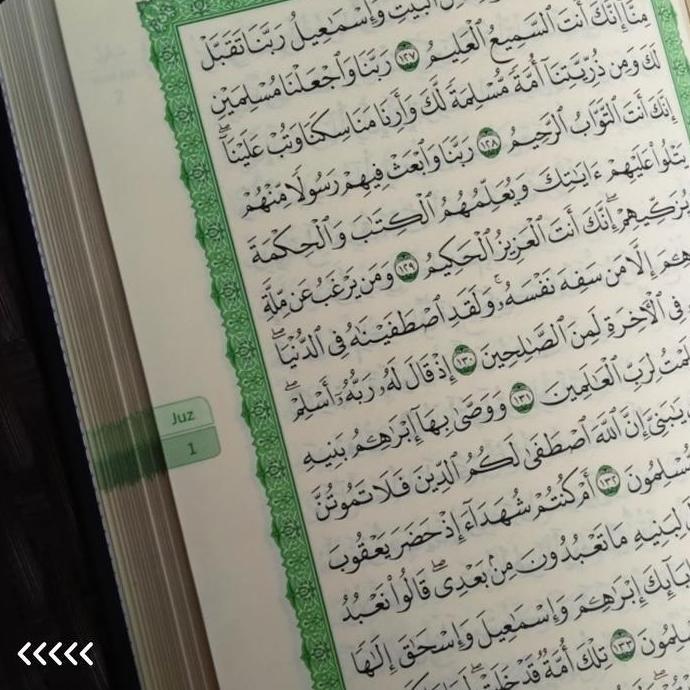 ٱلْبَيْتِ وَإِسْمَٰعِيلُ رَبَّنَا تَقَبَّلْ
مِنَّآ إِنَّكَ أَنتَ ٱلسَّمِيعُ ٱلْعَلِيمُ ١٢٧ رَبَّنَا وَٱجْعَلْنَا مُسْلِمَيْنِ
لَكَ وَمِن ذُرِّيَّتِنَآ أُمَّةً مُّسْلِمَةً لَّكَ وَأَرِنَا مَنَاسِكَنَا وَتُبْ عَلَيْنَآ ۖ
إِنَّكَ أَنتَ ٱلتَّوَّابُ ٱلرَّحِيمُ ١٢٨ رَبَّنَا وَٱبْعَثْ فِيهِمْ رَسُولًا مِّنْهُمْ
يَتْلُوا۟ عَلَيْهِمْ ءَايَٰتِكَ وَيُعَلِّمُهُمُ ٱلْكِتَٰبَ وَٱلْحِكْمَةَ
يُزَكِّيهِمْ ۚ إِنَّكَ أَنتَ ٱلْعَزِيزُ ٱلْحَكِيمُ ١٢٩ وَمَن يَرْغَبُ عَن مِّلَّةِ
إِلَّا مَن سَفِهَ نَفْسَهُۥ ۚ وَلَقَدِ ٱصْطَفَيْنَٰهُ فِى ٱلدُّنْيَا ۖ
فِى ٱلْءَاخِرَةِ لَمِنَ ٱلصَّٰلِحِينَ ١٣٠ إِذْ قَالَ لَهُۥ رَبُّهُۥٓ أَسْلِمْ ۖ
لِرَبِّ ٱلْعَٰلَمِينَ ١٣١ وَوَصَّىٰ بِهَآ إِبْرَٰهِۦمُ بَنِيهِ
يَٰبَنِىَّ إِنَّ ٱللَّهَ ٱصْطَفَىٰ لَكُمُ ٱلدِّينَ فَلَا تَمُوتُنَّ
مُّسْلِمُونَ ١٣٢ أَمْ كُنتُمْ شُهَدَآءَ إِذْ حَضَرَ يَعْقُوبَ
لِبَنِيهِ مَا تَعْبُدُونَ مِنۢ بَعْدِى ۖ قَالُوا۟ نَعْبُدُ
ءَابَآئِكَ إِبْرَٰهِۦمَ وَإِسْمَٰعِيلَ وَإِسْحَٰقَ إِلَٰهًا
١٣٣ تِلْكَ أُمَّةٌ قَدْ خَلَتْ ۖ
Juz
1
<<<<<